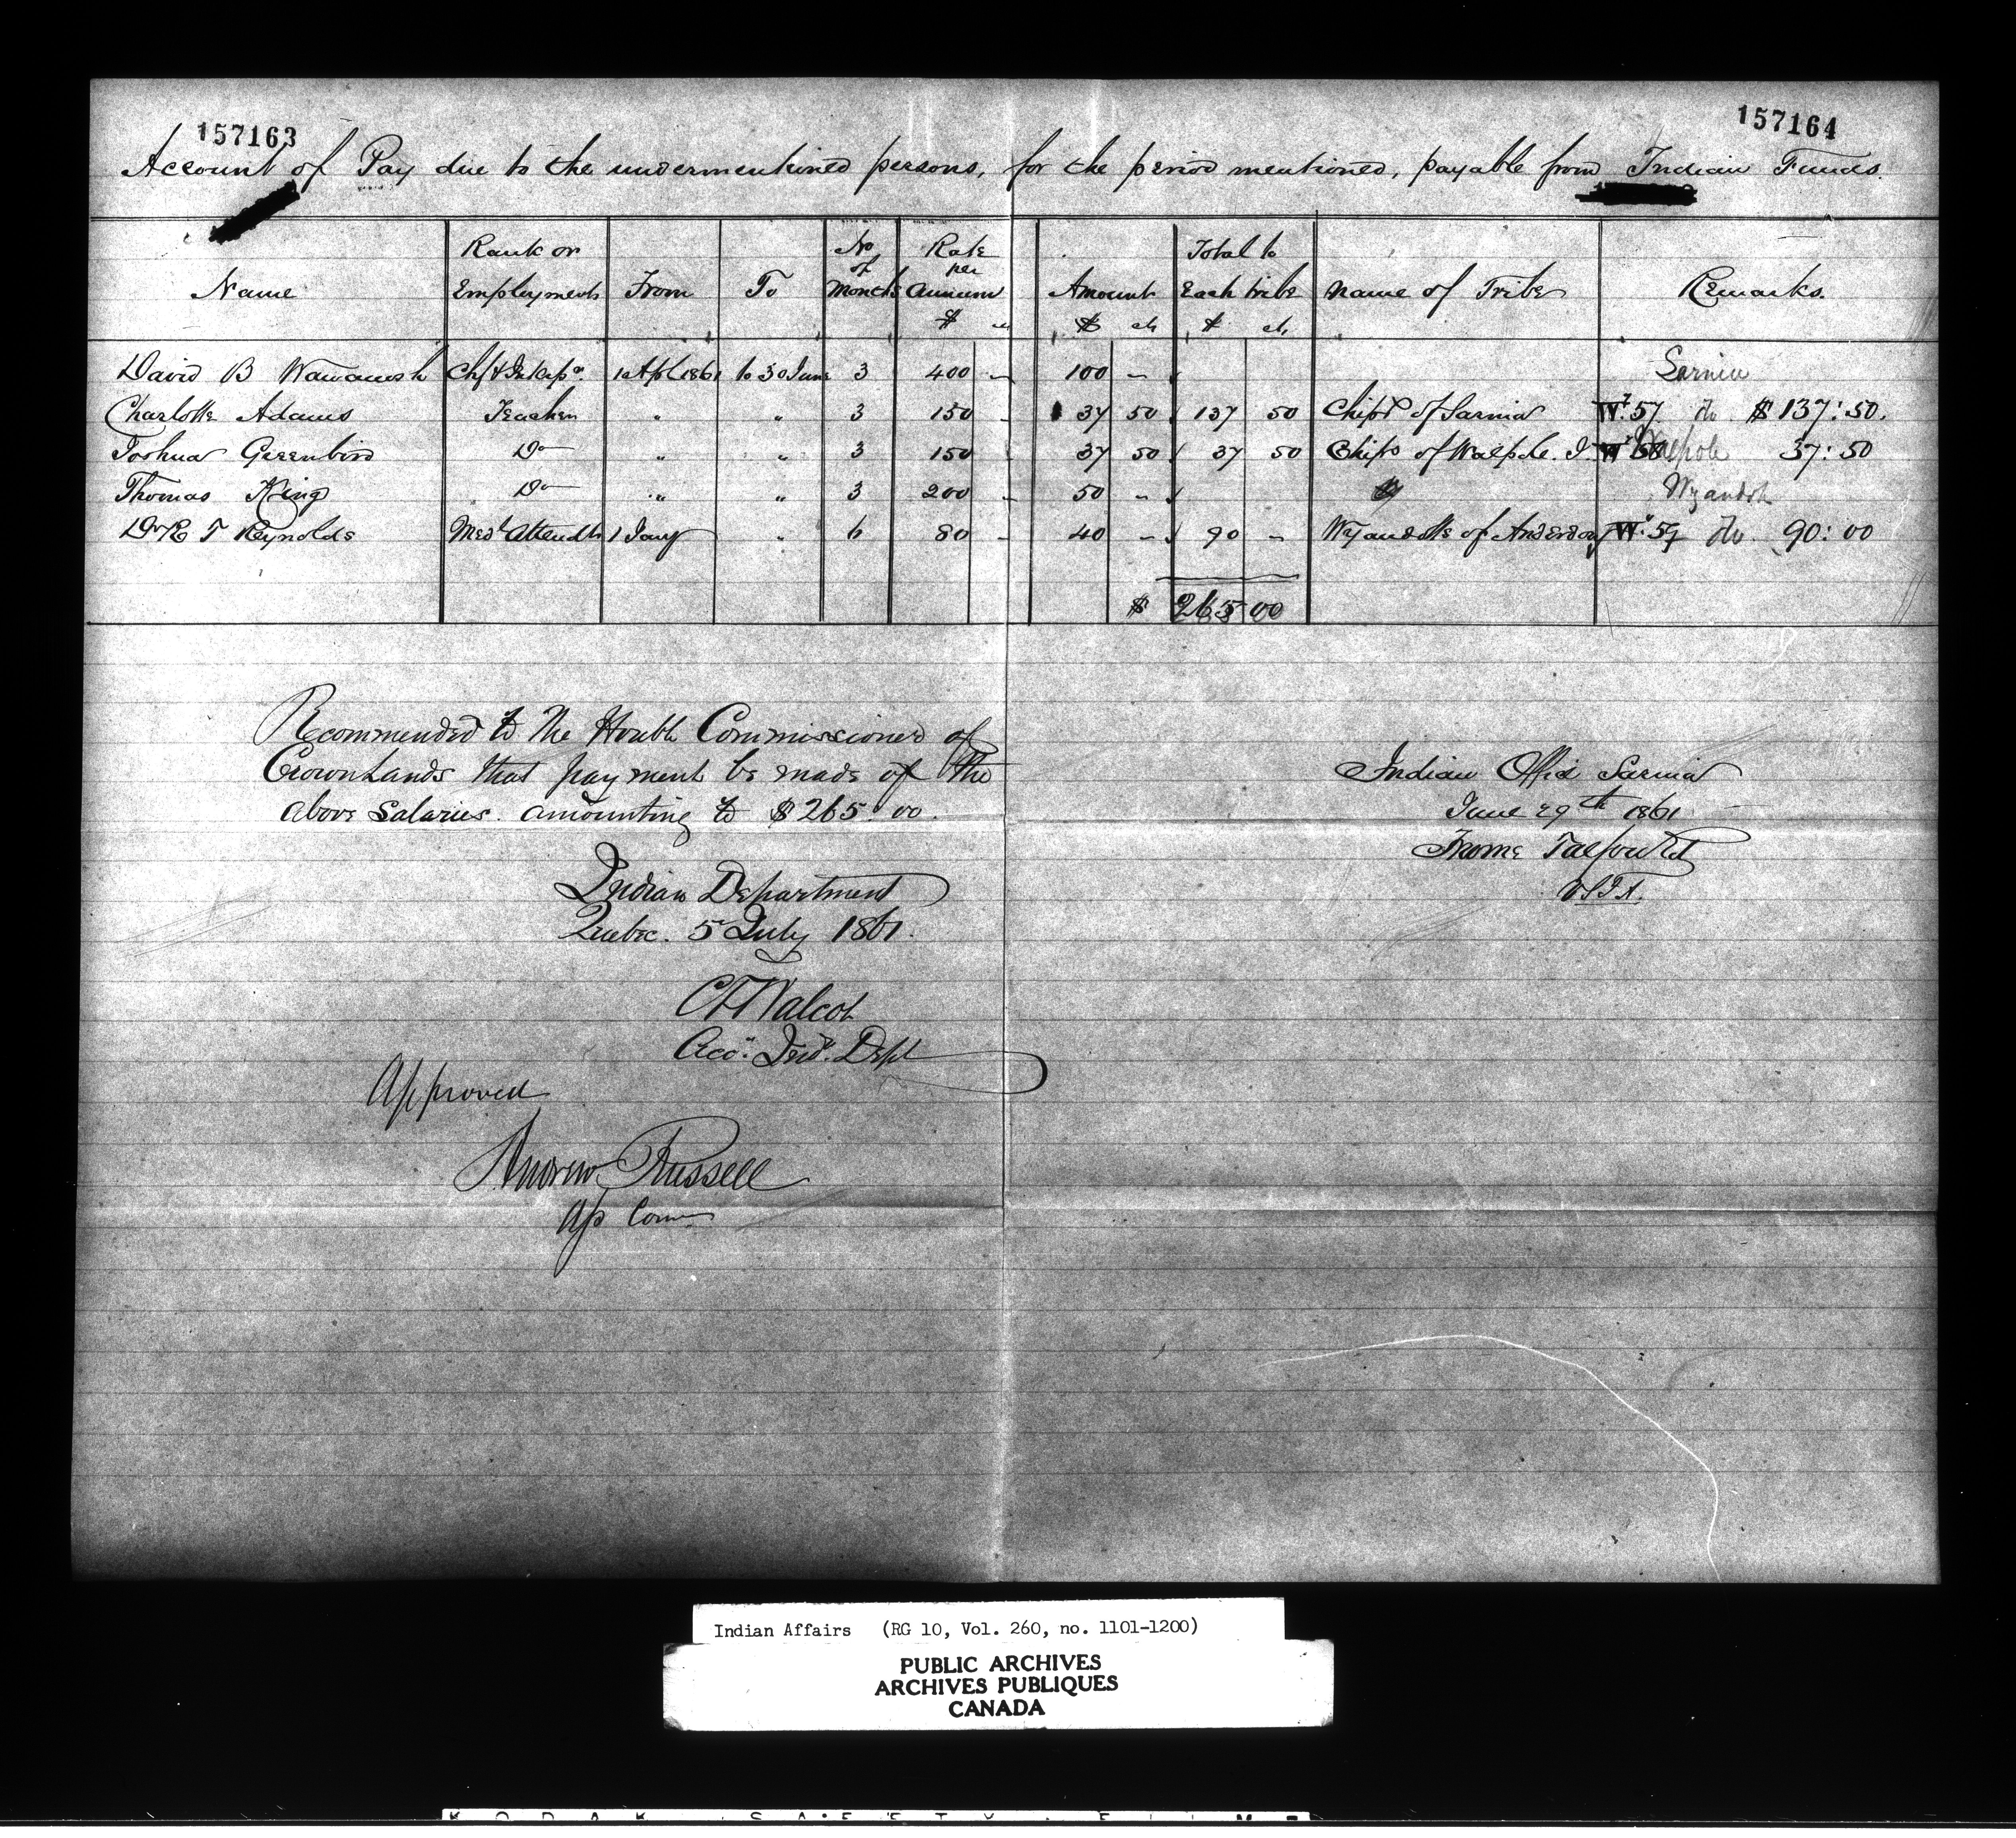 157163
157164
Account of Pay due to the undermentioned persons, for the period mentioned, payable from Indian Funds.
Name | Rank or Employment | From | To | No of Months | Rate per Annum $ | Amount $ cts | Total to Each tribe $ cts | Name of Tribe | Remarks.
David B Wawanosh | Chf & | 1 Apl 1861 | to 30 June | 3 | 400 – | 100 – | | | Sarnia
Charlotte Adams | Teacher | " | " | 3 | 150 - | 37 50 | 137 50 | Chips of Sarnia | Wt. 57 do $137:50.
Joshua Greenbird | Do | " | " | 3 | 150 - | 37 50 | 37 50 | Chips of Walpole. I. | Wt 58 Walpole 37:50
Thomas King | Do | " | " | 3 | 200 - | 50 - | | | Wyandots
Dr R T Reynolds | Medl Attendt | 1 Jany | " | 6 | 80 - | 40 - | 90 - | Wyandotts of Anderdon | Wt. 59 do. 90:00
$ 265 00
Recommended to The Honble Commissioner of
Crown Lands that payment be made of the
above Salaries. amounting to $265.00.
Indian Department
Quebec. 5 July 1861.
C T Walcot
Acct. Ind. Dept
Approved
Andrew Russell
Indian Office Sarnia
June 29th 1861
Froome Talfourd
V S I A.
Indian Affairs (RG 10, Vol. 260, no. 1101-1200)
PUBLIC ARCHIVES
ARCHIVES PUBLIQUES
CANADA
KODAK SAFETY FILM